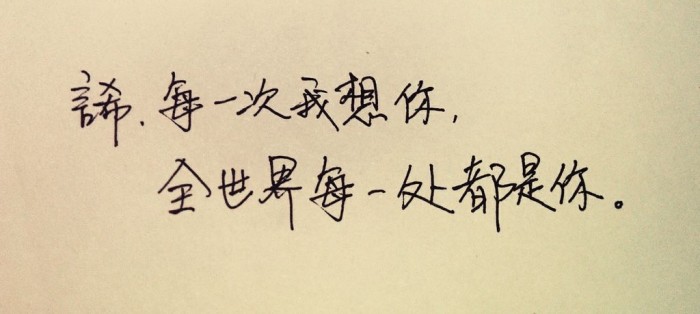 諦.每一次我想你,
全世界每一处都是你。